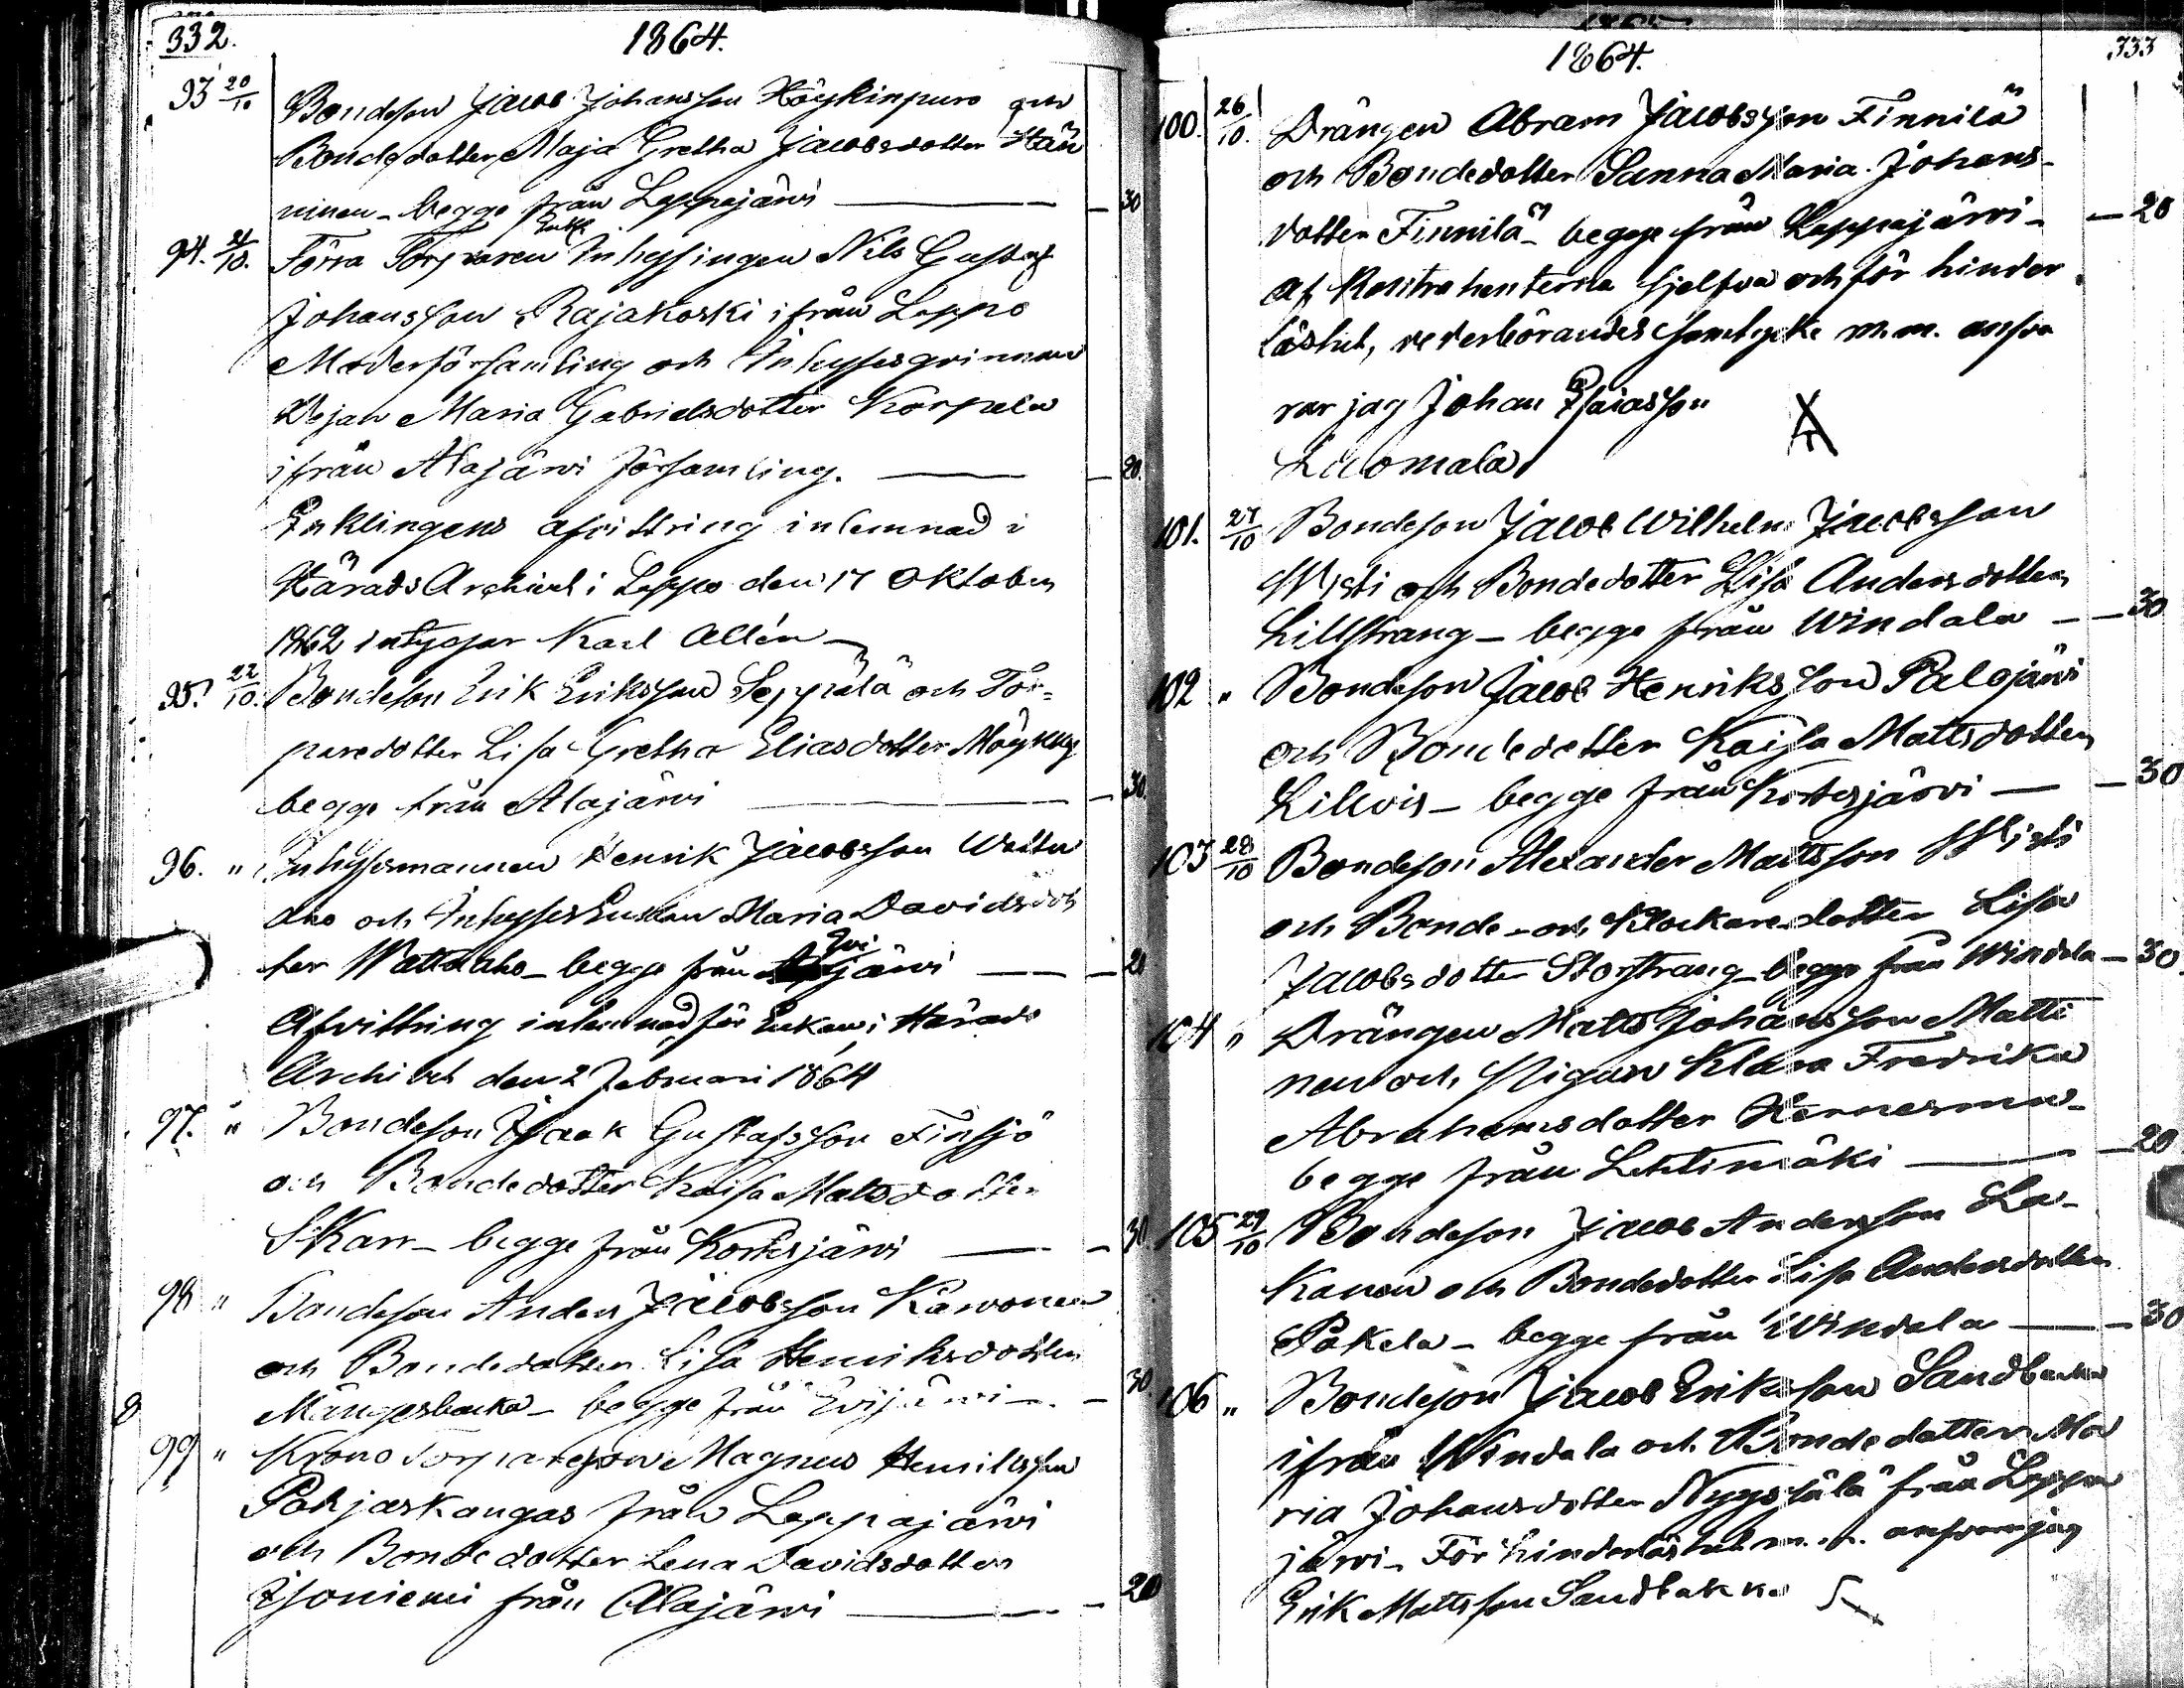 332.
1864.
93 20/10 Bondeson Jacob Johansson Höykinpuro och
Bondedotter Maja Gretha Jacobsdotter Hän
ninen - begge från Lappajärvi — 30
94. 21/10. Förra Torparen Enkl Inhysingen Nils Gustaf
Johansson Rajakoski ifrån Lappo
Moderförsamling och Inhysesqvinnan
Maria Gabrielsdotter Korpela
ifrån Alajärvi församling. — 20.
Enklingens afvittring inlemnad i
Härads Archivet i Lappo den 17 Oktober
1862 intygar Karl Allén —
95. 22/10. Bondeson Erik Eriksson Seppälä och Tor-
paredotter Lisa Gretha Eliasdotter
begge från Alajärvi — 30.
96. " Inhysesmannen Henrik Jacobsson Watta
aho och Inhyses Enkan Maria Davidsdot
ter Wattaaho - begge från Evijärvi — 20
Afvittring inlemnad för Enkan i Härads
Archivet den 2 Februari 1864
97. " Bondeson Isaak Gustafsson Finsjö
och Bondedotter Kaisa Mattsdotter
Skarr - begge från Kortesjärvi — 30.
98 " Bondeson Anders Jacobsson Karvonen
och Bondedotter Lisa Henriksdotter
Mångesbacka - begge från Evijärvi — 30.
99 " Krono Torpareson Magnus Henriksson
Pohjaskangas från Lappajärvi
och Bondedotter Lena Davidsdotter
Isoniemi från Alajärvi — 20
333
1864.
100. 26/10. Drängen Abram Jacobsson Finnilä
och Bondedotter Sanna Maria Johans-
dotter Finnilä - begge från Lappajärvi - — 20
af Kontrahenterna sjelfva och för hinder
löshet, vederbörandes samtycke m.m. ansva
rar jag Johan Esaiasson
Luomala
101. 27/10 Bondeson Jacob Wilhelm Jacobsson
Wisti och Bondedotter Lisa Andersdotter
Lillstrang - begge från Windala — 30
102 " Bondeson Jacob Henriksson Palojärvi
och Bondedotter Kaisa Mattsdotter
Lillvis - begge från Kortesjärvi — 30
103 28/10 Bondeson Alexander Mattsson Wisti
och Bonde- och Klockaredotter Lisa
Jacobsdotter Storstrang - begge från Windala — 30
104 " Drängen Matts Johansson Matti
nen och Pigan Klara Fredrika
Abrahamsdotter
begge från Lehtimäki — 20
105 29/10 Bondeson Jacob Andersson La-
kanen och Bondedotter Lisa Andersdotter
Pokela - begge från Windala — 30
106 " Bondeson Jacob Eriksson Sandbacka
ifrån Windala och Bondedotter Ma
ria Johansdotter Nyyssälä från Lappa
järvi - För hinderlöshet m.m. ansvarar jag
Erik Mattsson Sandbakka